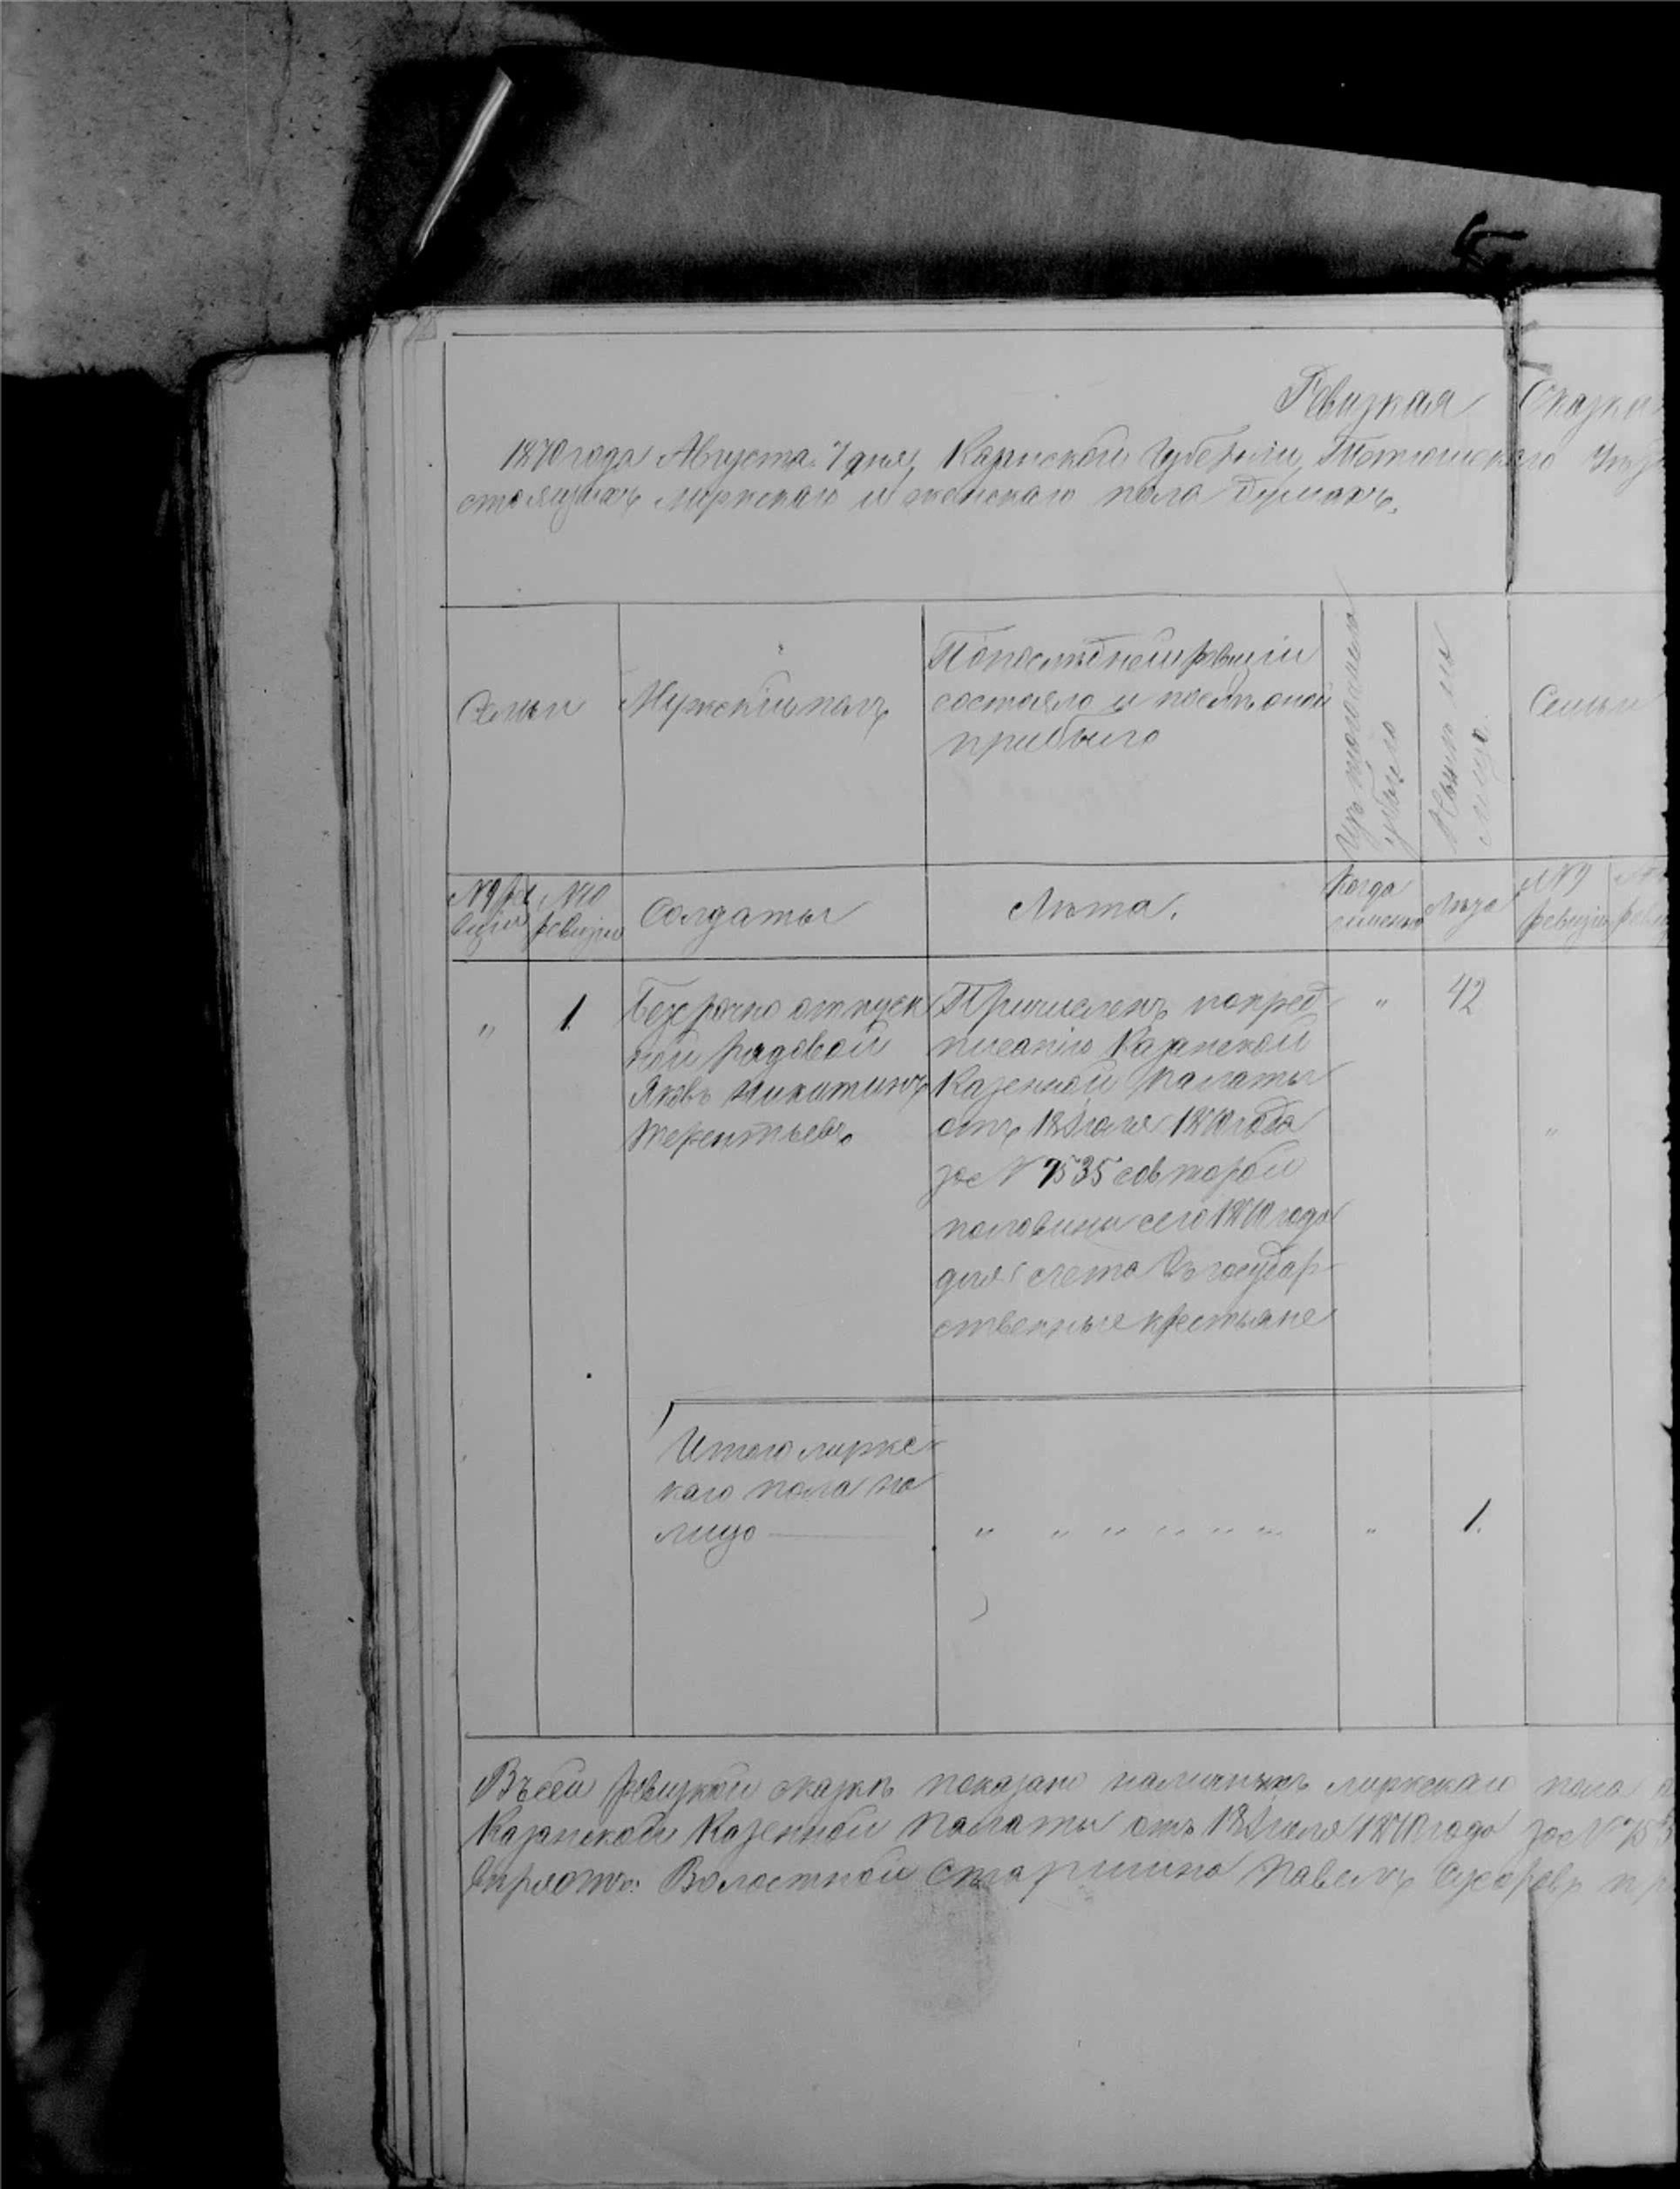 Ревизкая Сказка
1870 года Августа 7 дня, Казанской Губернiи, Тетюшскаго
стоящихъ мужскаго и женскаго пола душахъ.
Семьи
Мужскiй полъ
По последней ревизiи
состояло и послѣ оной
прибыло
Изъ того числа
убыло
Нынѣ на
лицо.
Семьи
№ 9 ре
визiи
№ 10
ревизiи
Солдаты
Лѣта.
Когда
именно
Лѣта
№ 9
ревизiи
"
1.
Безсрочно отпуск
ной рядовой
Яковъ Никитинъ
Терентьевъ
Причисленъ по пред
писанiю Казанской
Казенной Палаты
отъ 18 Iюля 1870 года
за № 7535 со второй
половины сего 1870 года
для счета въ государ
ственные крестьяне
"
42
"
Итого мужес
каго пола на
лицо
" " " " " " "
1.
Въ сей ревизкой сказкѣ показано наличныхъ мужскаго пола
Казанской Казенной Палаты отъ 18 Iюля 1870 года за №
Волостной Старшина Павелъ